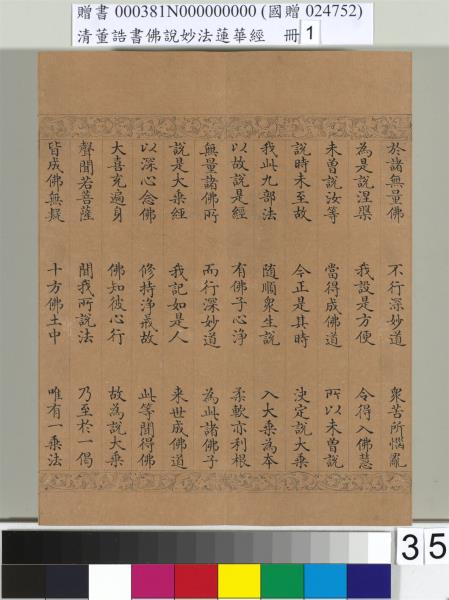 贈書 000381N000000000 (國贈 024752)
清董誥書佛說妙法蓮華經 冊 1
於諸無量佛 不行深妙道 眾苦所惱亂
為是說涅槃 我設是方便 令得入佛慧
未曾說汝等 當得成佛道 所以未曾說
說時未至故 今正是其時 決定說大乘
我此九部法 隨順眾生說 入大乘為本
以故說是經 有佛子心淨 柔軟亦利根
無量諸佛所 而行深妙道 為此諸佛子
說是大乘經 我記如是人 來世成佛道
以深心念佛 修持淨戒故 此等聞得佛
大喜充遍身 佛知彼心行 故為說大乘
聲聞若菩薩 聞我所說法 乃至於一偈
皆成佛無疑 十方佛土中 唯有一乘法
35